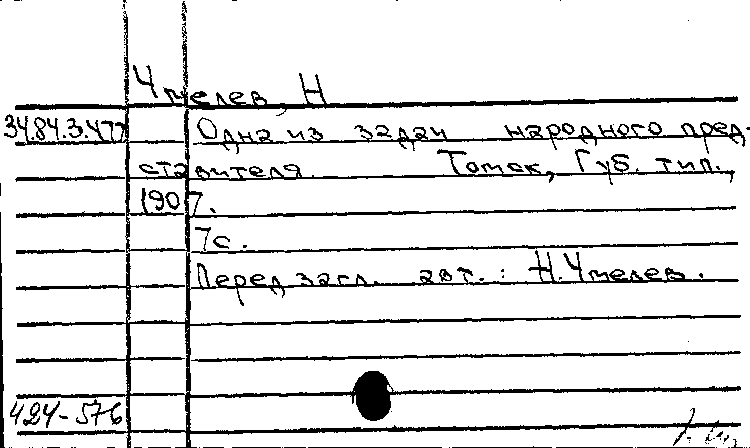 Чмелев, Н
34.84.3.477 Одна из задач народного пред-
ставителя. Томск, Губ. тип.,
1907.
7с.
Перед загл. авт.: Н. Чмелев.
424-576